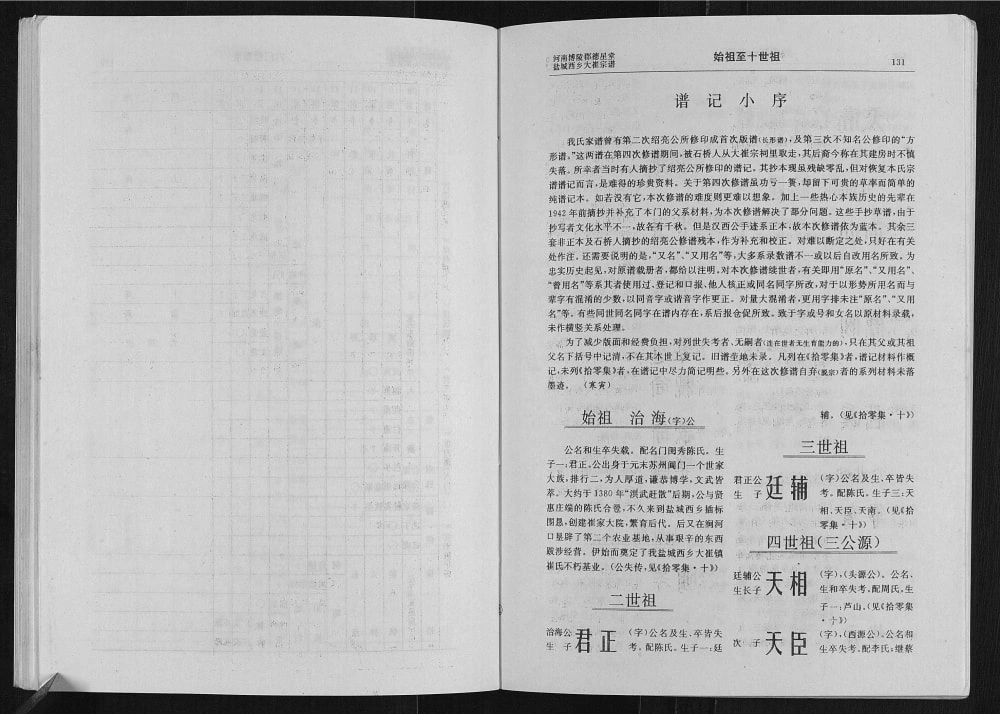 河南博陵郡德星堂
盐城西乡大崔宗谱
始祖至十世祖
131
谱记小序
我氏家谱曾有第二次绍亮公所修印成首次版谱(长形谱),及第三次不知名公修印的“方
形谱,”这两谱在第四次修谱期间,被石桥人从大崔宗祠里取走,其后裔今称在其建房时不慎
失落。所幸者当时有人摘抄了绍亮公所修印的谱记。其抄本现虽残缺零乱,但对恢复本氏宗
谱谱记而言,是难得的珍贵资料。关于第四次修谱虽功亏一篑,却留下可贵的草率而简单的
纯谱记本。如若没有它,本次修谱的难度则更难以想象。加上一些热心本族历史的先辈在
1942年前摘抄并补充了本门的父系材料,为本次修谱解决了部分问题。这些手抄草谱,由于
抄写者文化水平不一,故各有千秋。但是汉西公手迹系正本,故本次修谱依为蓝本。其余三
套非正本及石桥人摘抄的绍亮公修谱残本,作为补充和校正。对难以断定之处,只好在有关
处作注。还需要说明的是,“又名”、“又用名”等,大多系录数谱不一或以后自改用名所致。为
忠实历史起见,对原谱载册者,都给以注明。对本次修谱续世者,有关即用“原名”、“又用名”、
“曾用名”等系其者使用过、登记和口报、他人核正或同名同字所改,对于以形势所用名而与
辈字有混淆的少数,以同音字或谐音字作更正。对量大混淆者,更用字排未注“原名”、“又用
名”等。有些同世同名同字在谱内存在,系后报仓促所致。致于字或号和女名以原材料录载,
未作横竖关系处理。
为了减少版面和经费负担,对列世失考者、无嗣者(连在世者无生育能力的),只在其父或其祖
父名下括号中记清,不在其本世上复记。旧谱茔地未录。凡列在《拾零集》者,谱记材料作概
记,未列《拾零集》者,在谱记中尽力简记明些。另外在这次修谱自弃(脱宗)者的系列材料未落
墨迹。(寒寅)
始祖 治海(字)公
公名和生卒失载。配名门闺秀陈氏。生
子一:君正,公出身于元末苏州阊门一个世家
大族,排行二,为人厚道,谦恭博学,文武皆
萃。大约于1380年“洪武赶散”后期,公与贤
惠庄端的陈氏合舋,不久来到盐城西乡插标
围恳,创建崔家大院,繁育后代。后又在涧河
口垦辟了第二个农业基地,从事艰辛的东西
跋涉经营。伊始而奠定了我盐城西乡大崔镇
崔氏不朽基业。(公失传,见《拾零集·十》)
二世祖
治海公
生子
君正
(字)公名及生、卒皆失
考。配陈氏。生子一:廷
辅。(见《拾零集·十》)
三世祖
君正公
生子
廷辅
(字)公名及生、卒皆失
考。配陈氏。生子三:天
相、天臣、天南。(见《拾
零集·十》)
四世祖(三公源)
廷辅公
生长子
天相
(字),(头源公)。公名、
生和卒失考,配周氏,生
子一:芦山。(见《拾零集
·十》)
次子
天臣
(字),(西源公)。公名和
生卒失考。配李氏;继蔡